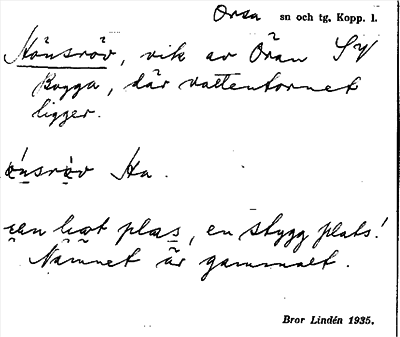 Orsa sn och tg. Kopp. l.
Hönsröv, vik av Öran SV
Bogga, där vattentornet
ligger.
Ha.
plas, en stygg plats!
Namnet är gammalt.
Bror Lindén 1935.